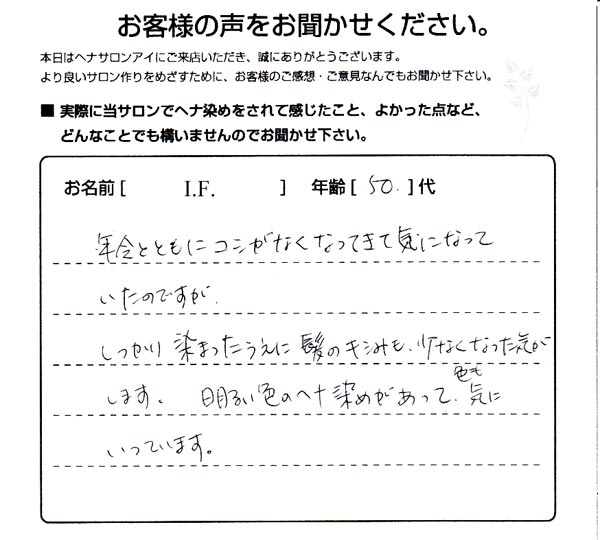 お客様の声をお聞かせください。
本日はヘナサロンアイにご来店いただき、誠にありがとうございます。
より良いサロン作りをめざすために、お客様のご感想・ご意見なんでもお聞かせ下さい。
■ 実際に当サロンでヘナ染めをされて感じたこと、よかった点など、
どんなことでも構いませんのでお聞かせ下さい。
お名前[ I.F. ] 年齢[ 50. ]代
年令とともにコシがなくなってきて気になって
いたのですが、
しっかり染まったうえに髪のキシみも、少なくなった気が
します、 明るい色のヘナ染めがあって、色も気に
いっています。